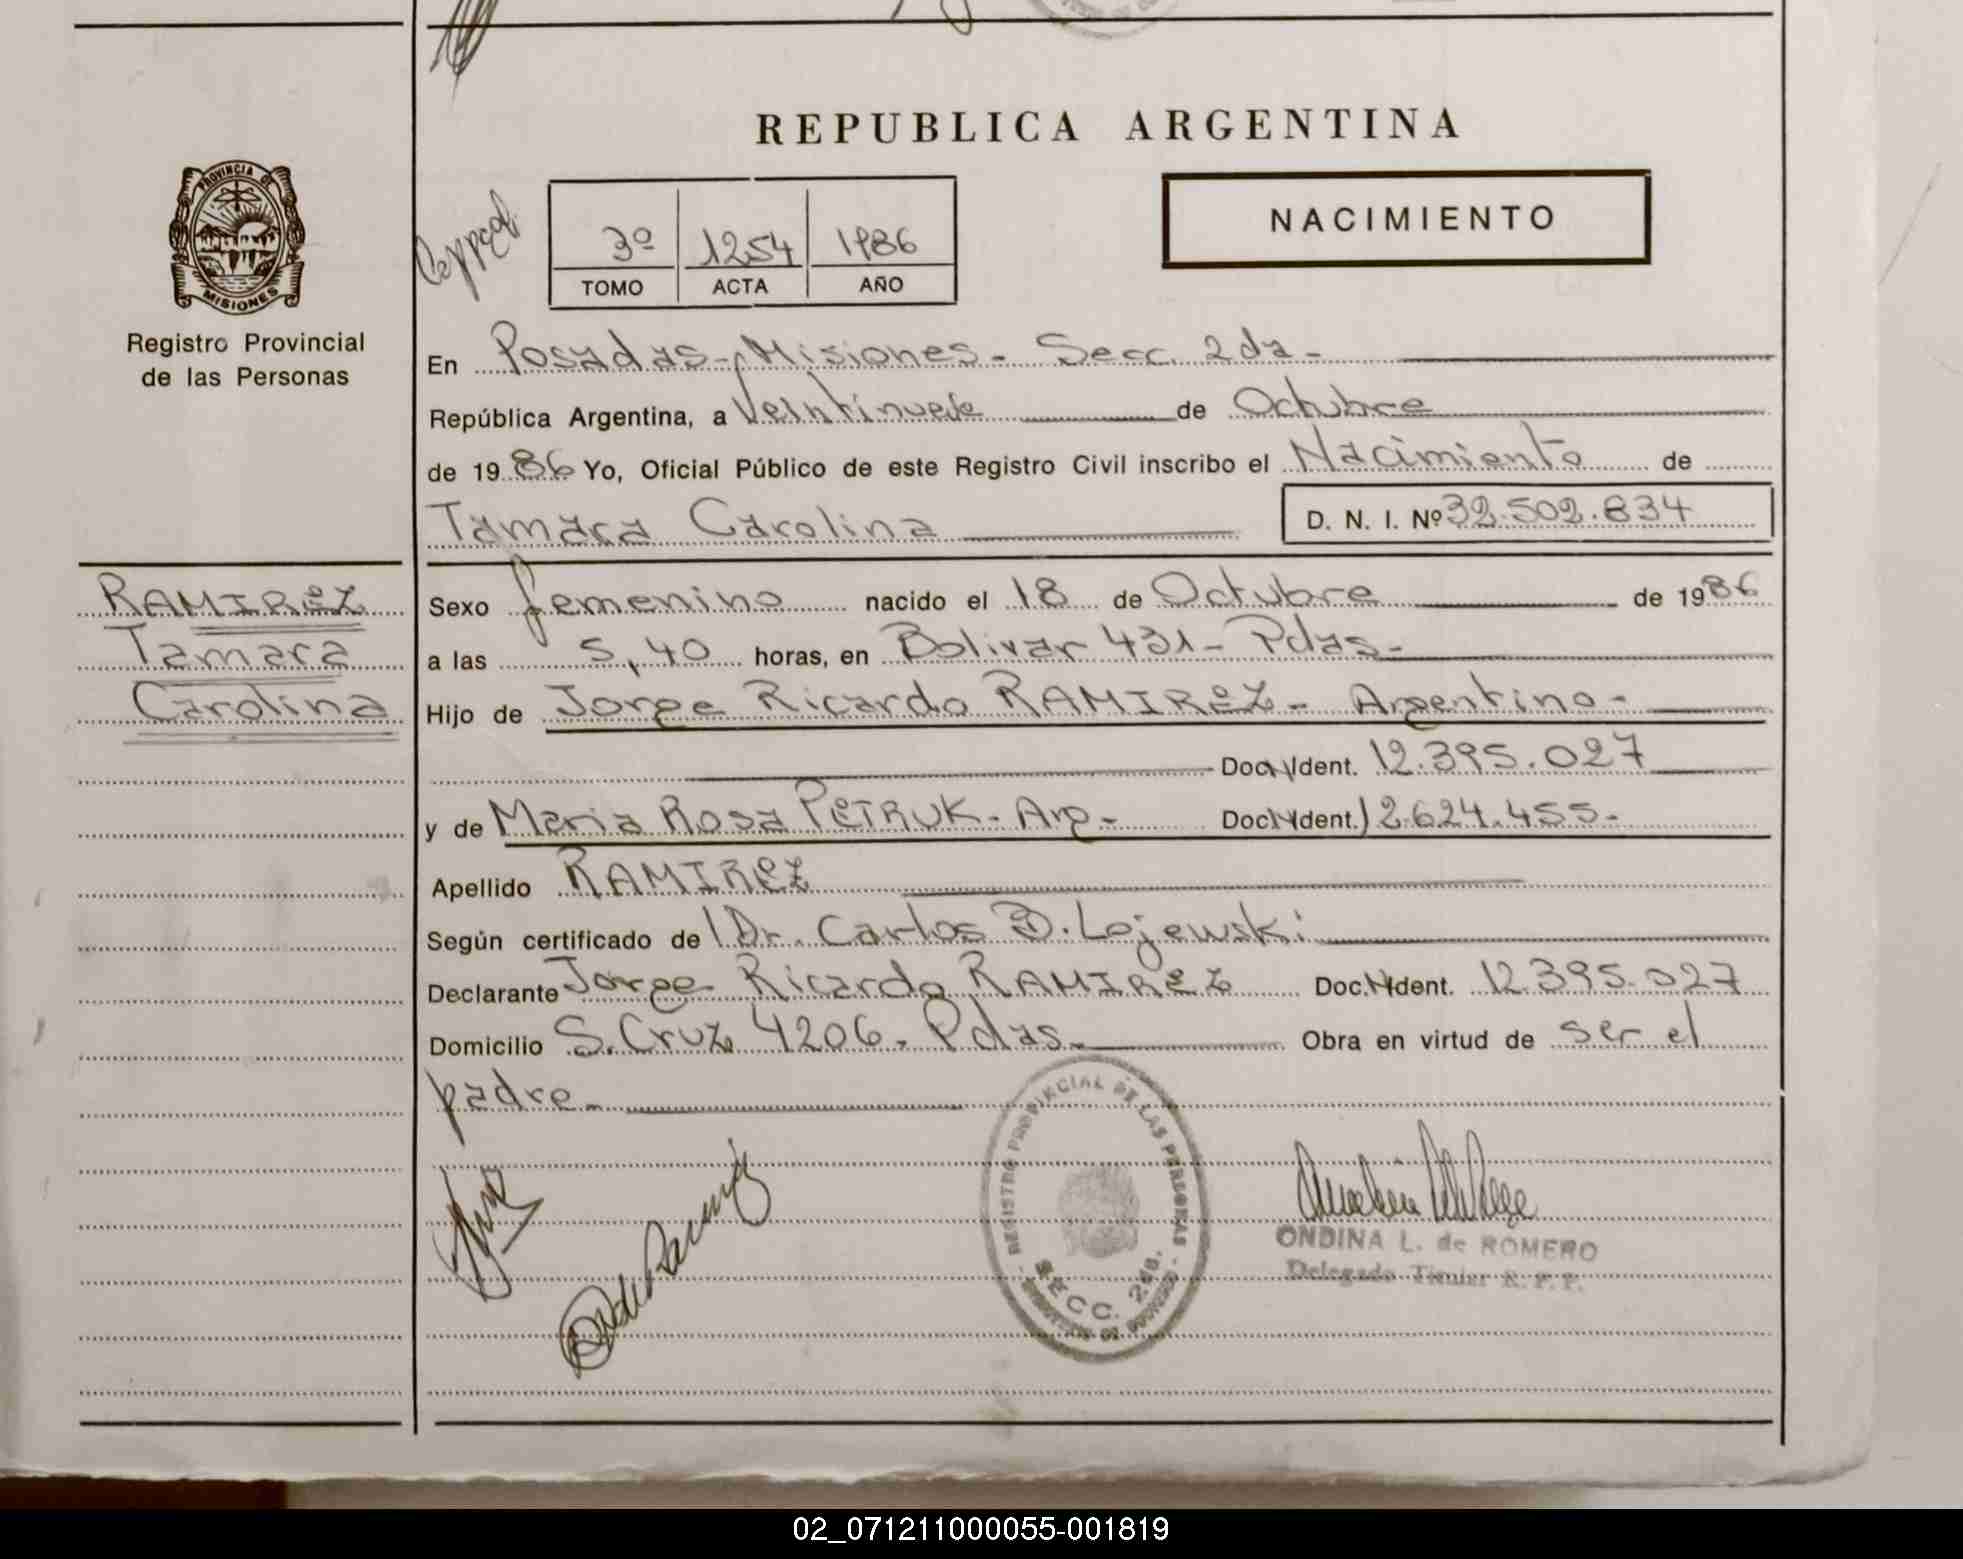 REPUBLICA ARGENTINA
PROVINCIA DE
MISIONES
Registro Provincial
de las Personas
3º 1254 1986
TOMO ACTA AÑO
NACIMIENTO
En Posadas - Misiones - Secc. 2da -
República Argentina, a Veintinueve de Octubre
de 1986 Yo, Oficial Público de este Registro Civil inscribo el Nacimiento de
Tamara Carolina D. N. I. Nº 32.502.834
RAMIREZ
Tamara
Carolina
Sexo femenino nacido el 18 de Octubre de 1986
a las 5,40 horas, en Bolivar 431 - Pdas -
Hijo de Jorge Ricardo RAMIREZ - Argentino -
Doc. Ident. 12.395.027
y de Maria Rosa PETRUK - Arg - Doc. Ident. 12.624.455 -
Apellido RAMIREZ
Según certificado de Dr. Carlos D. Lojewski
Declarante Jorge Ricardo RAMIREZ Doc. Ident. 12.395.027
Domicilio S. Cruz 4206 - Pdas - Obra en virtud de ser el
padre -
REGISTRO PROVINCIAL DE LAS PERSONAS
SECC. 2da.
ONDINA L. de ROMERO
Delegado Titular R. P. P.
02_071211000055-001819